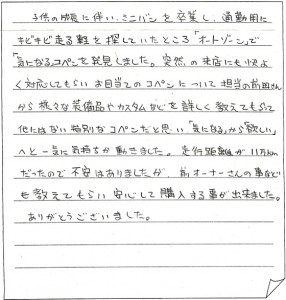 子供の成長に伴い、ミニバンを卒業し、通勤用に
キビキビ走る軽を探していたところ「オートゾーン」で
気になるコペンを発見しました。突然の来店にも心よ
く対応してもらいお目当てのコペンについて担当の前田さん
から様々な装備品やカスタムなどを詳しく教えてもらって
他にはない特別なコペンだと思い「気になる」から「欲しい」
へと一気に気持ちが動きました。走行距離が11万km
だったので不安はありましたが、前オーナーさんの事など
も教えてもらい安心して購入する事が出来ました。
ありがとうございました。